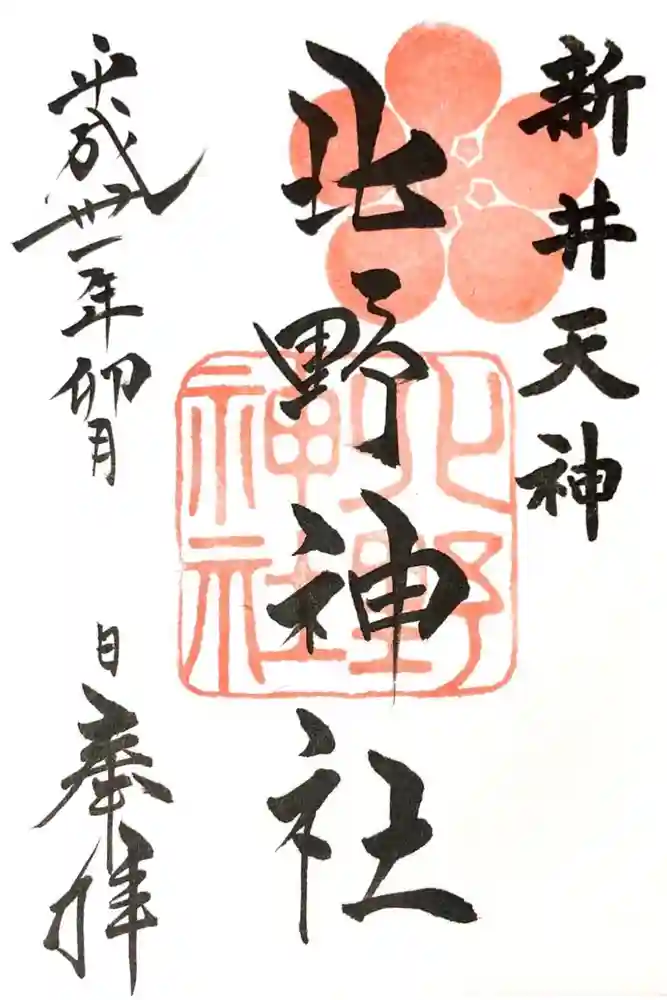 新井天神
北野神社
平成卅一年卯月 日
奉拝
北野神社